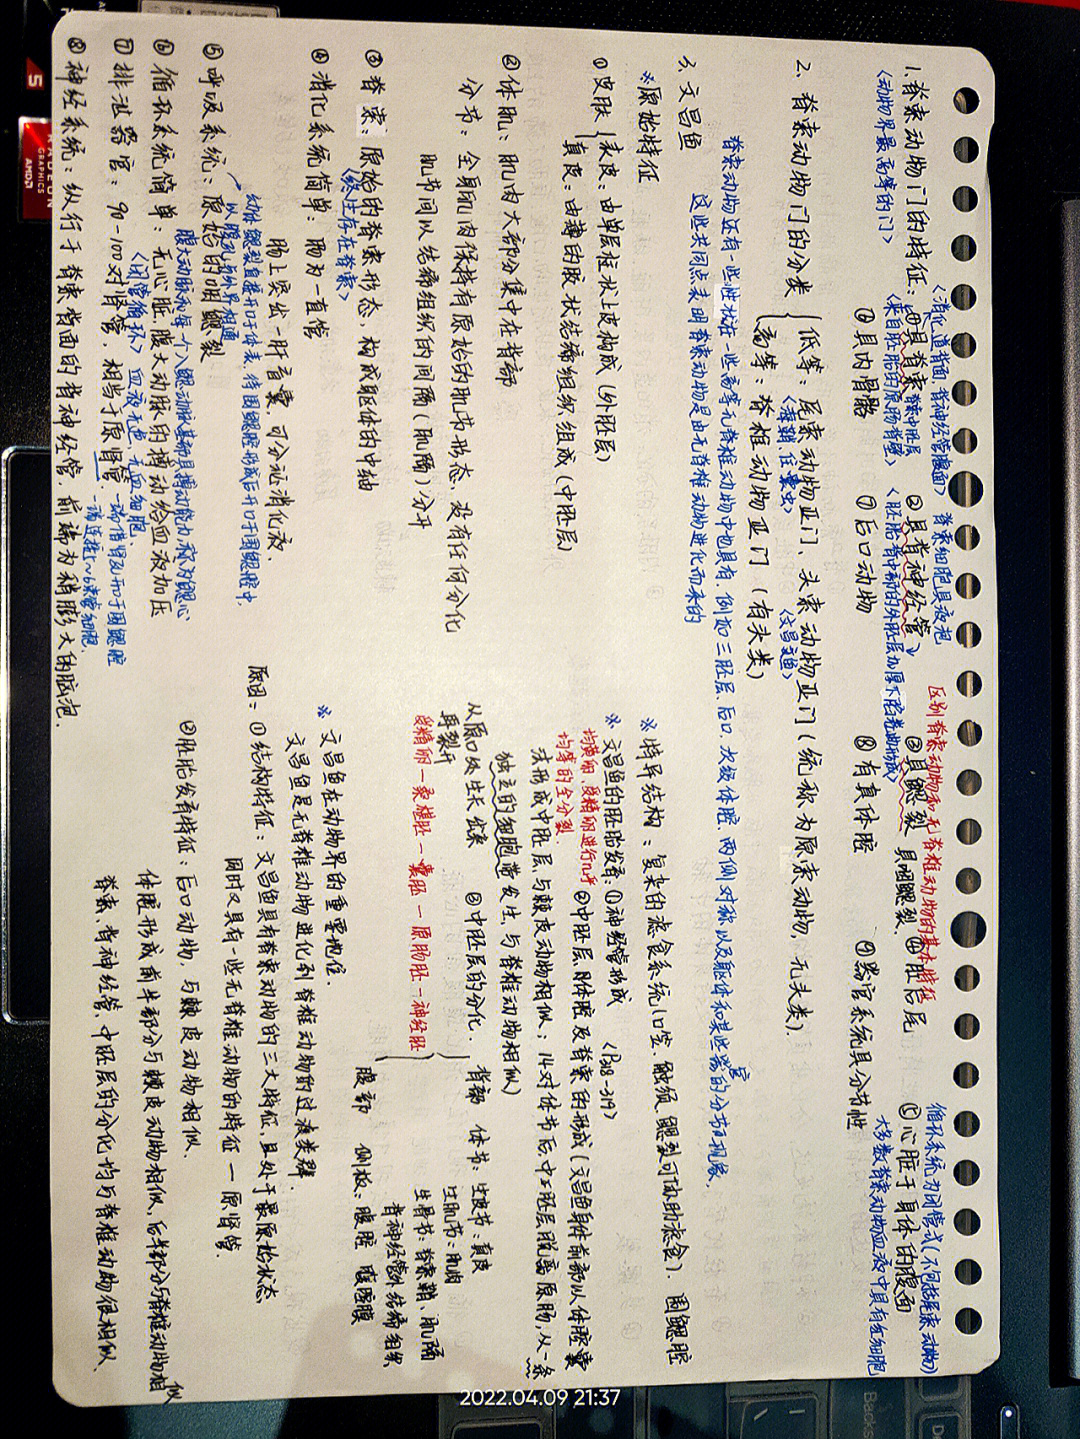 1. 脊索动物门的特征：①具脊索 ②具背神经管 ③具鳃裂 具咽鳃裂、④肛后尾 ⑤心脏于身体的腹面
<动物界最高等的门>
<消化道背面，背神经管腹面> 脊索细胞具液泡
区别脊索动物和无脊椎动物的基本特征
循环系统为闭管式(不包括尾索动物)
脊索中胚层
<来自胚胎的原肠背壁> <胚胎背中部的外胚层加厚下陷卷曲形成>
大多数脊索动物血液中具有红细胞
⑥具内骨骼 ⑦后口动物 ⑧有真体腔 ⑨器官系统具分节性
2. 脊索动物门的分类
低等：尾索动物亚门、头索动物亚门(统称为原索动物，无头类).
<海鞘、住囊虫> <文昌鱼>
高等：脊椎动物亚门(有头类)
脊索动物还有一些性状在一些高等无脊椎动物中也具有，例如三胚层、后口、次级体腔、两侧对称以及躯体和某些器官的分节现象，
这些共同点表明脊索动物是由无脊椎动物进化而来的
3. 文昌鱼
※原始特征
①皮肤
表皮：由单层柱状上皮构成(外胚层)
真皮：由薄的胶状结缔组织组成(中胚层)
②体肌：肌肉大部分集中在背部
分节：全身肌肉保持有原始的肌节形态，没有任何分化
肌节间以结缔组织的间隔(肌隔)分开
③脊索：原始的脊索形态，构成躯体的中轴
<终生存在脊索>
④消化系统简单：肠为一直管
肠上突出一肝盲囊，可分泌消化液
幼体鳃裂直接开口于体表，待围鳃腔形成后开口于围鳃腔中，
以腹孔与外界相通
⑤呼吸系统：原始的咽鳃裂
腹大动脉和每一个入鳃动脉基部具搏动能力，称为鳃心
⑥循环系统简单：无心脏，腹大动脉的搏动给血液加压
<闭管循环> 血液无色，无血细胞.
⑦排泄器官：90-100对肾管，相当于原肾管.
一端借肾孔开口于围鳃腔
一端连接5~6束管细胞.
⑧神经系统：纵行于脊索背面的背神经管，前端为稍膨大的脑泡.
※特异结构：复杂的滤食系统(口笠、触须、鳃裂可协助滤食). 围鳃腔
※文昌鱼的胚胎发育：①神经管形成 <P318-319>
均黄卵，受精卵进行几乎
均等的全分裂.
②中胚层、体腔及脊索的形成(文昌鱼身体前部以体腔囊
法形成中胚层，与棘皮动物相似；14对体节后，中胚层脱离原肠，从一条
独立的细胞带发生，与脊椎动物相似)
从原口处生长出来
再裂开
③中胚层的分化.
背部 体节：生皮节：真皮
生肌节：肌肉
生骨节：脊索鞘、肌隔
背神经管外结缔组织
腹部 侧板：腹腔 腹隔膜
受精卵—桑椹胚—囊胚—原肠胚—神经胚
※ 文昌鱼在动物界的重要地位.
文昌鱼是无脊椎动物进化到脊椎动物的过渡类群.
原因：①结构特征：文昌鱼具有脊索动物的三大特征，且处于最原始状态，
同时又具有一些无脊椎动物的特征—原肾管.
②胚胎发育特征：后口动物，与棘皮动物相似.
体腔形成前半部分与棘皮动物相似，后半部分与脊椎动物相似
脊索、背神经管、中胚层的分化均与脊椎动物很相似、
2022.04.09 21:37
5
RADEON
GRAPHICS
AMD
Backs